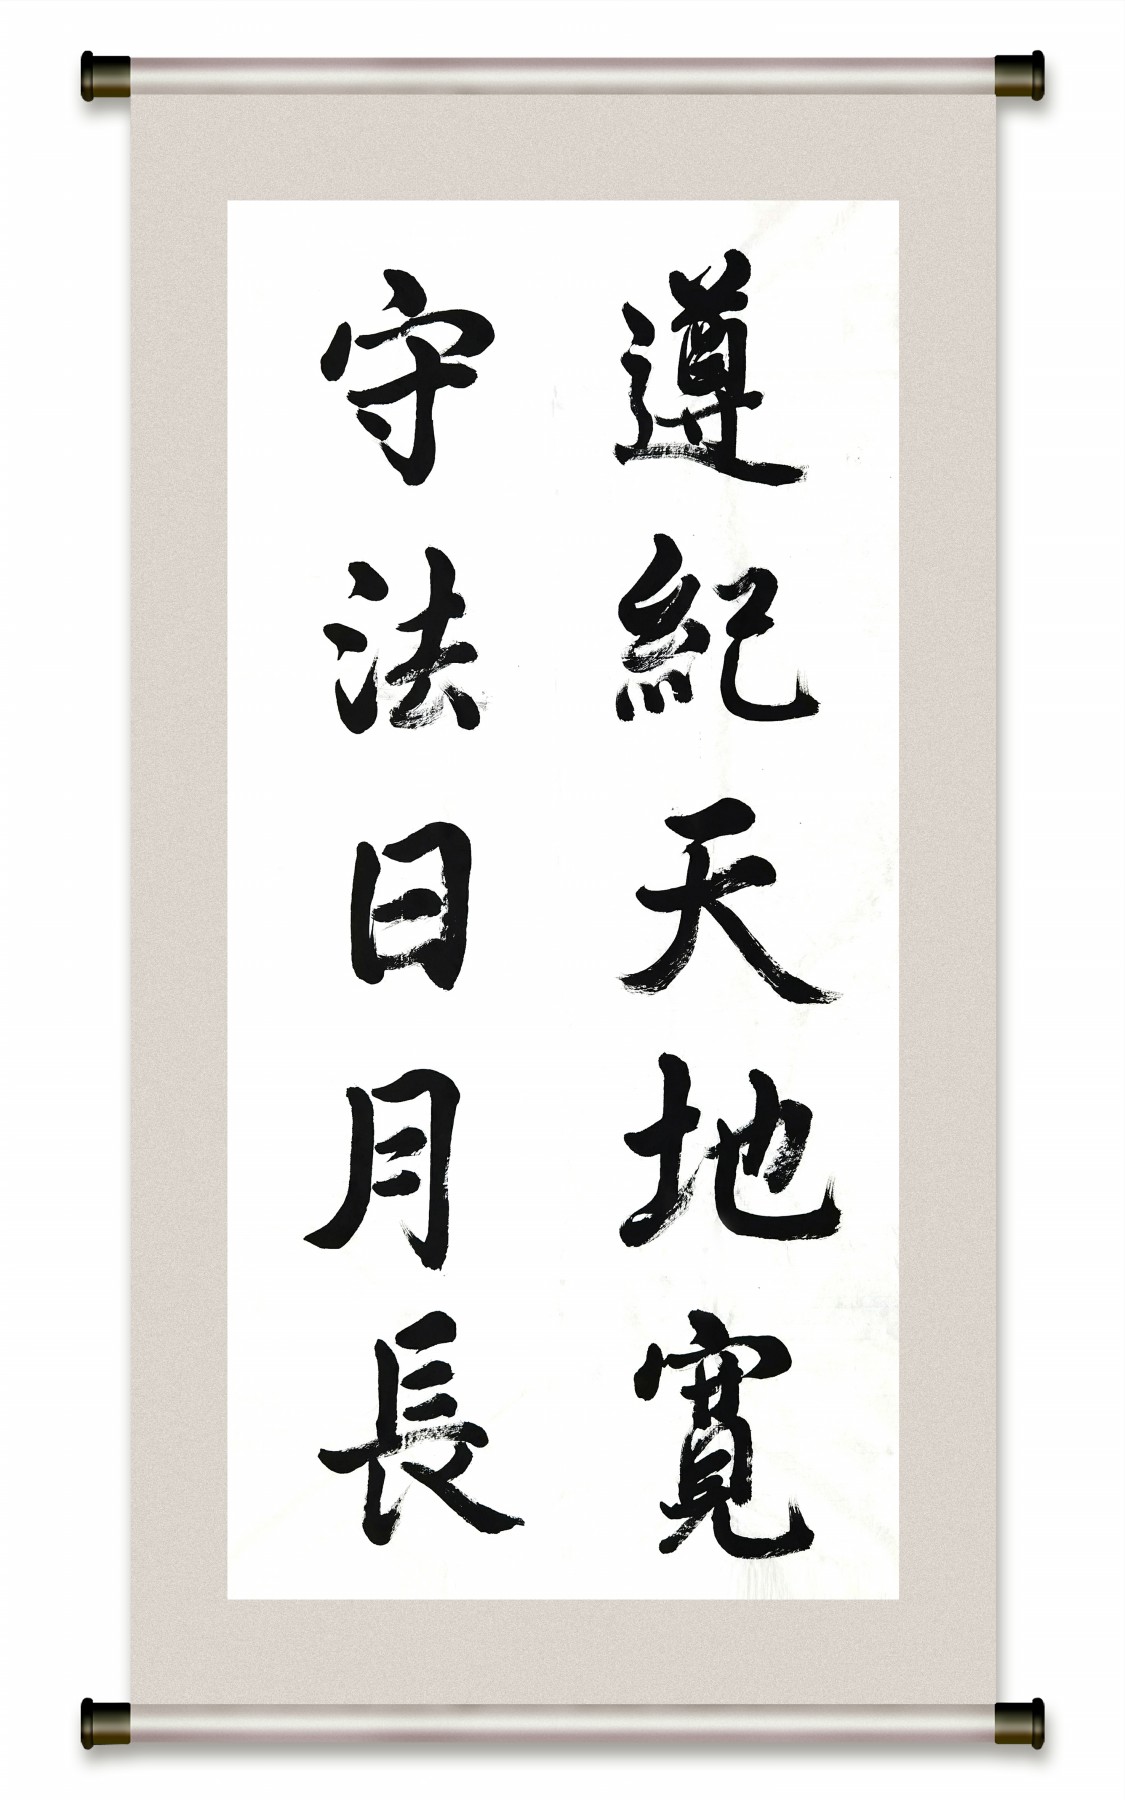 遵紀天地寬
守法日月長